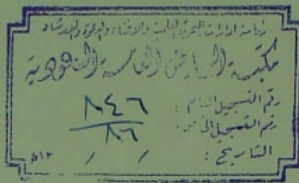 رئاسة ادارات البحوث العلمية والافتاء والدعوة والارشاد
مكتبة الرياض العامة السعودية
رقم التسجيل العام : ٨٤٦
رقم التسجيل الخاص : ٨٦
التاريخ : / / ١٣هـ